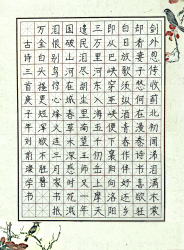 剑外忽传收蓟北初闻涕泪满衣裳
却看妻子愁何在漫卷诗书喜欲狂
白日放歌须纵酒青春作伴好还乡
即从巴峡穿巫峡便下襄阳向洛阳
三万里河东入海五千仞岳上摩天
遗民泪尽胡尘里南望王师又一年
国破山河在城春草木深感时花溅
泪恨别鸟惊心烽火连三月家书抵
万金白头搔更短浑欲不胜簪
古诗三首庚子年刘学书